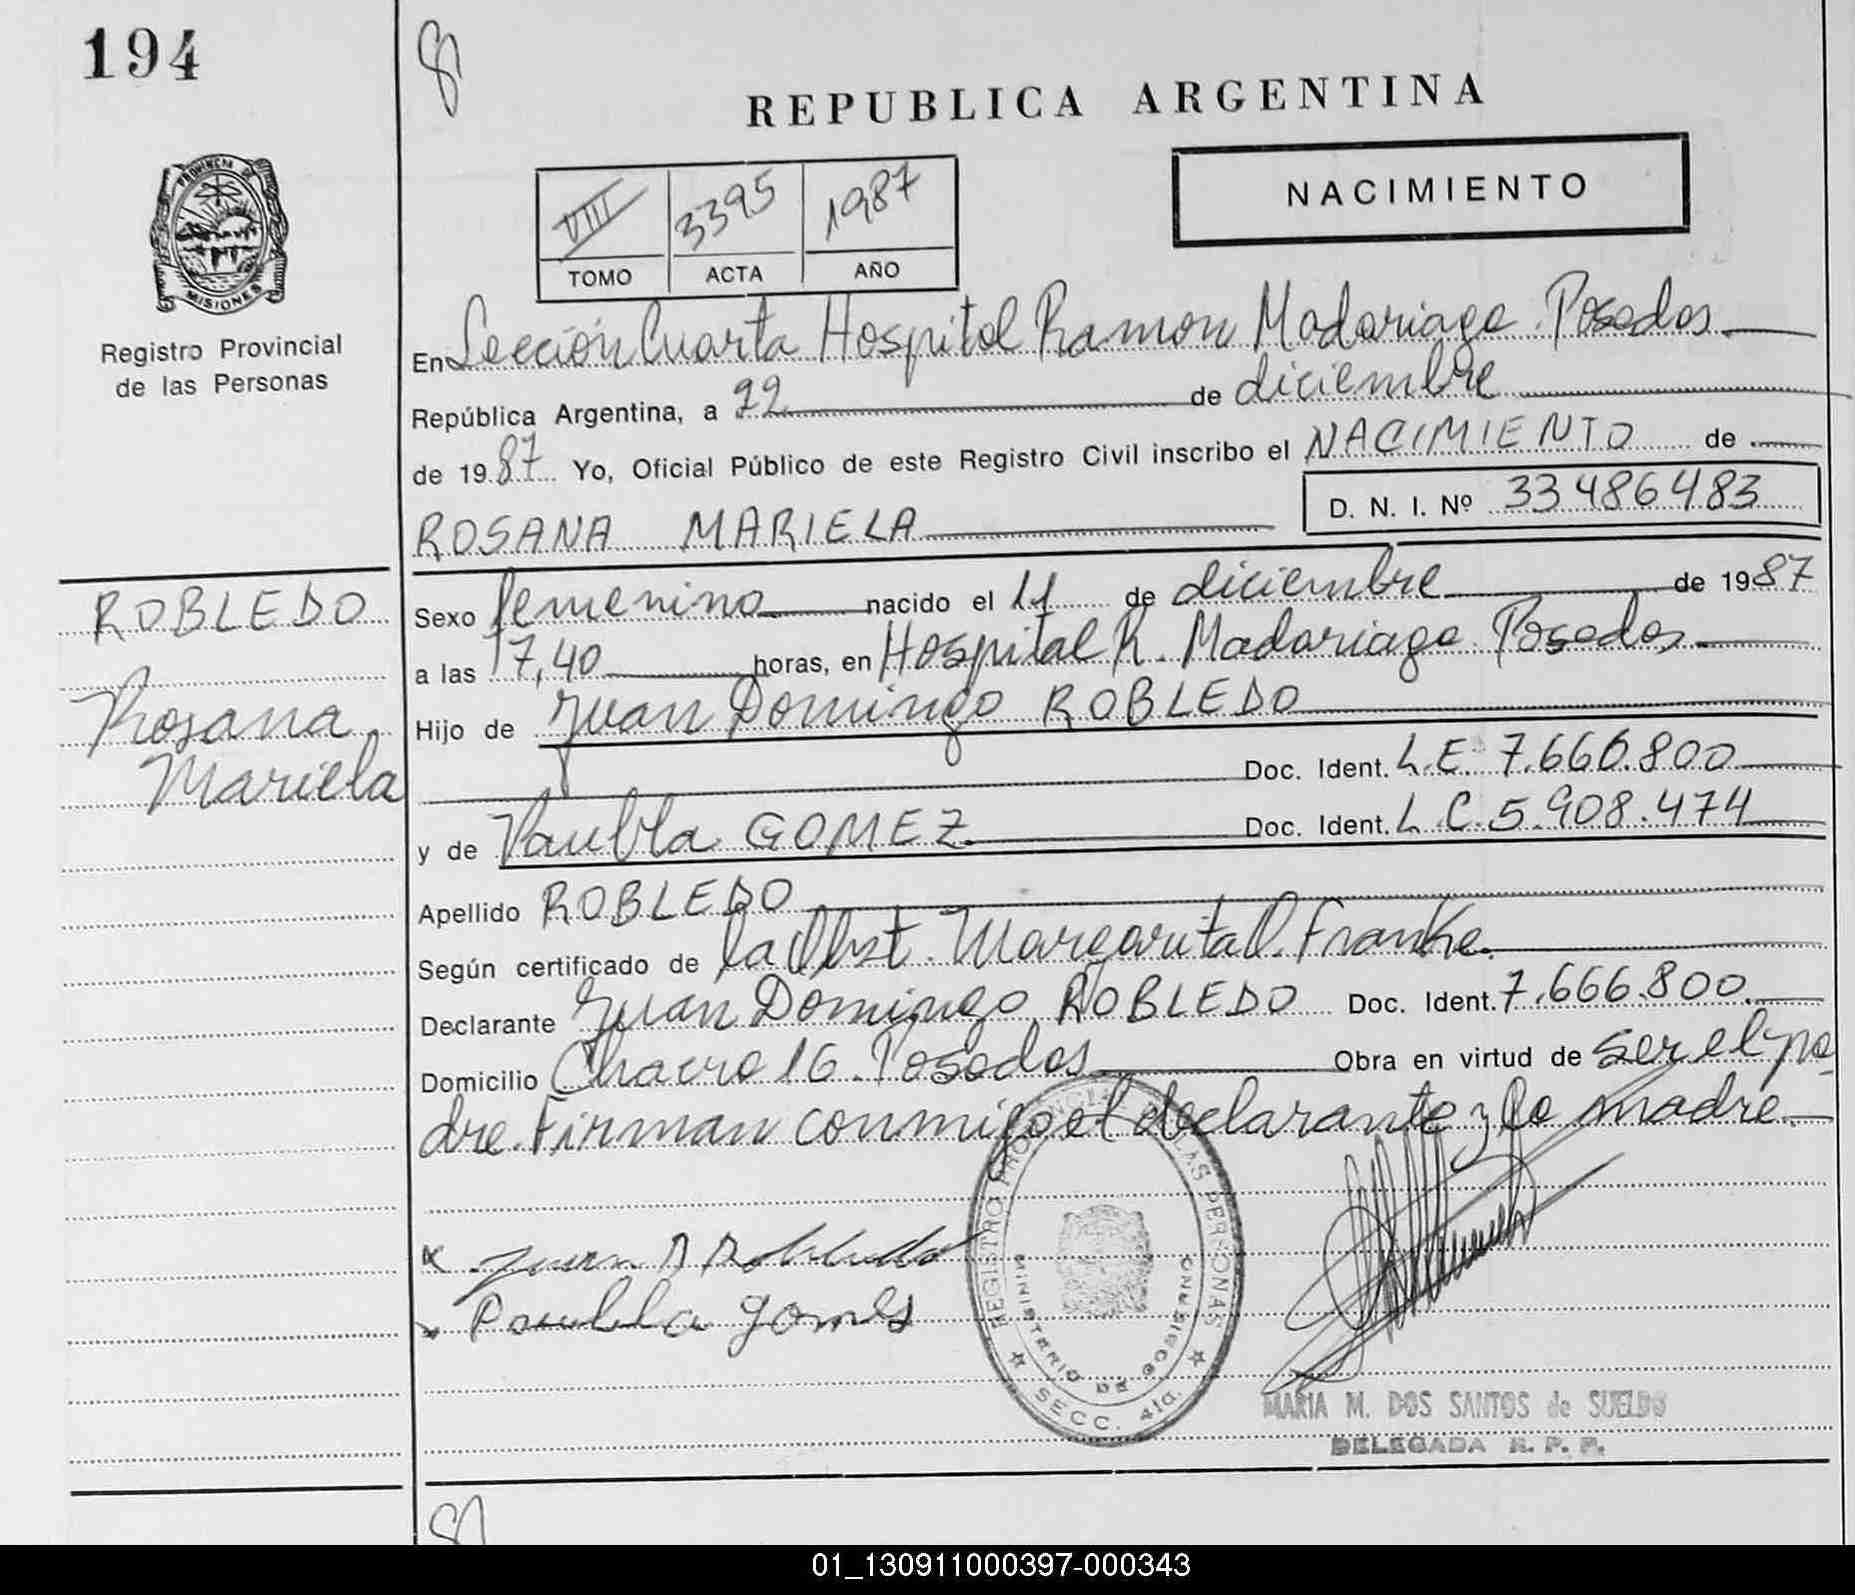 194
REPUBLICA ARGENTINA
PROVINCIA DE
MISIONES
Registro Provincial
de las Personas
VIII 3395 1987
TOMO ACTA AÑO
NACIMIENTO
En Sección Cuarta Hospital Ramon Madariaga. Posadas
República Argentina, a 22 de diciembre
de 1987 Yo, Oficial Público de este Registro Civil inscribo el NACIMIENTO de
ROSANA MARIELA D. N. I. Nº 33486483
ROBLEDO
Rosana
Mariela
Sexo femenino nacido el 11 de diciembre de 1987
a las 17,40 horas, en Hospital R. Madariaga. Posadas
Hijo de Juan Domingo ROBLEDO
Doc. Ident. L.E. 7.666.800
y de GOMEZ Doc. Ident. L.C. 5.908.474
Apellido ROBLEDO
Según certificado de la Obst. Margarita Franke.
Declarante Juan Domingo ROBLEDO Doc. Ident. 7.666.800
Domicilio Chacra 16. Posadas Obra en virtud de ser el pa
dre. Firman conmigo el declarante y la madre.
REGISTRO PROVINCIAL DE LAS PERSONAS
MINISTERIO DE GOBIERNO
SECC. 4ta.
MARIA M. DOS SANTOS de SUELDO
DELEGADA R. P. P.
01_130911000397-000343